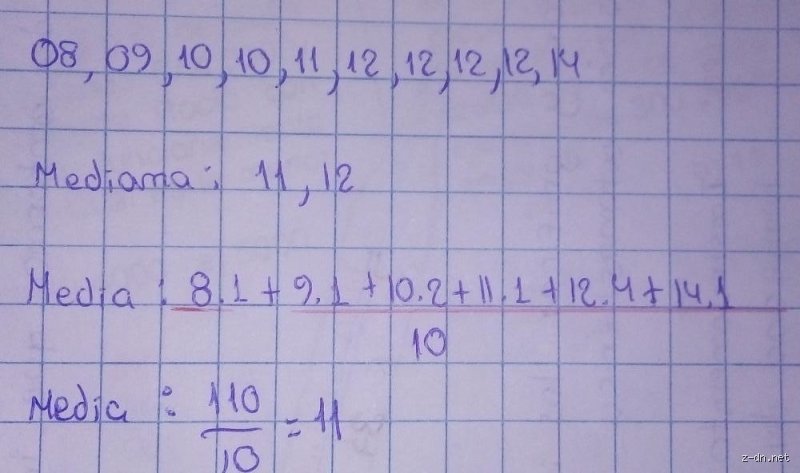 08, 09, 10, 10, 11, 12, 12, 12, 12, 14
Mediana: 11, 12
Media: 8.1 + 9.1 + 10.2 + 11.1 + 12.4 + 14.1
10
Media: 110
/10 = 11
z-dn.net